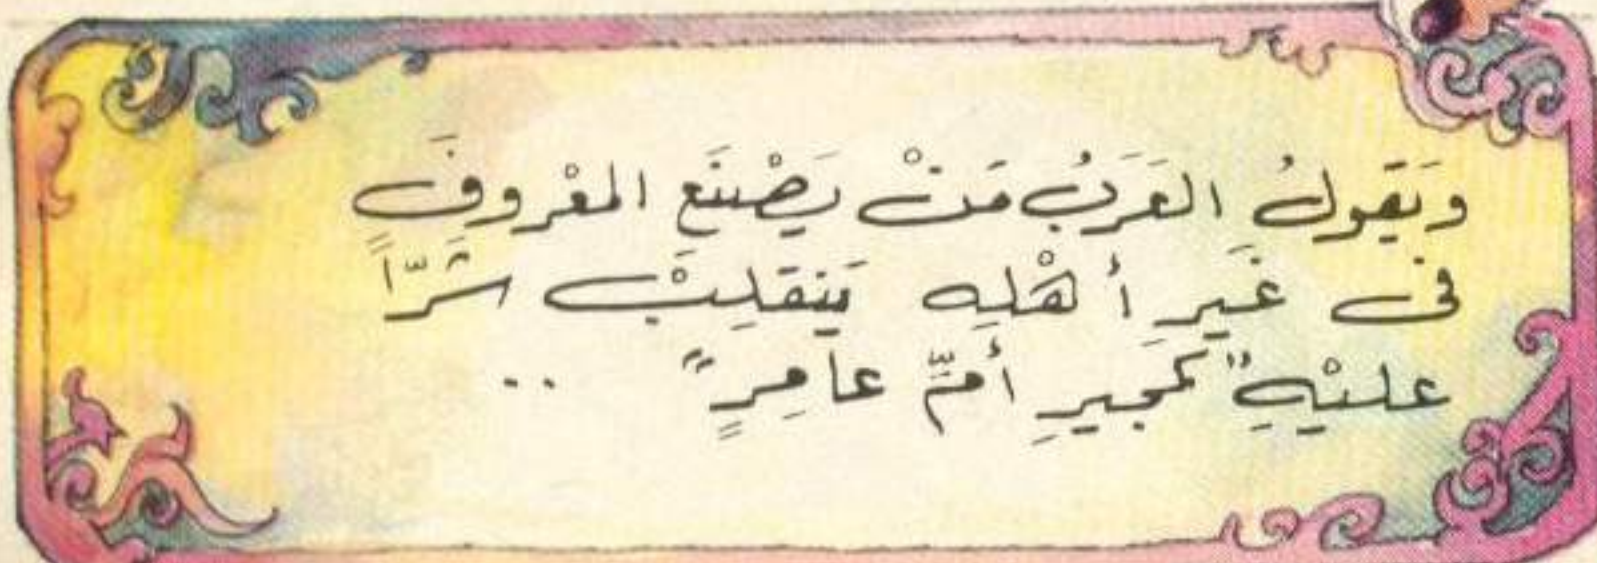 وَتَقولُ العَرَبُ مَنْ يَصْنَعِ المعْروفَ
فى غَيرِ أهْلِهِ يَنقَلِبْ شَرّاً
عليْهِ "كمُجيرِ أمِّ عامِرٍ" ..